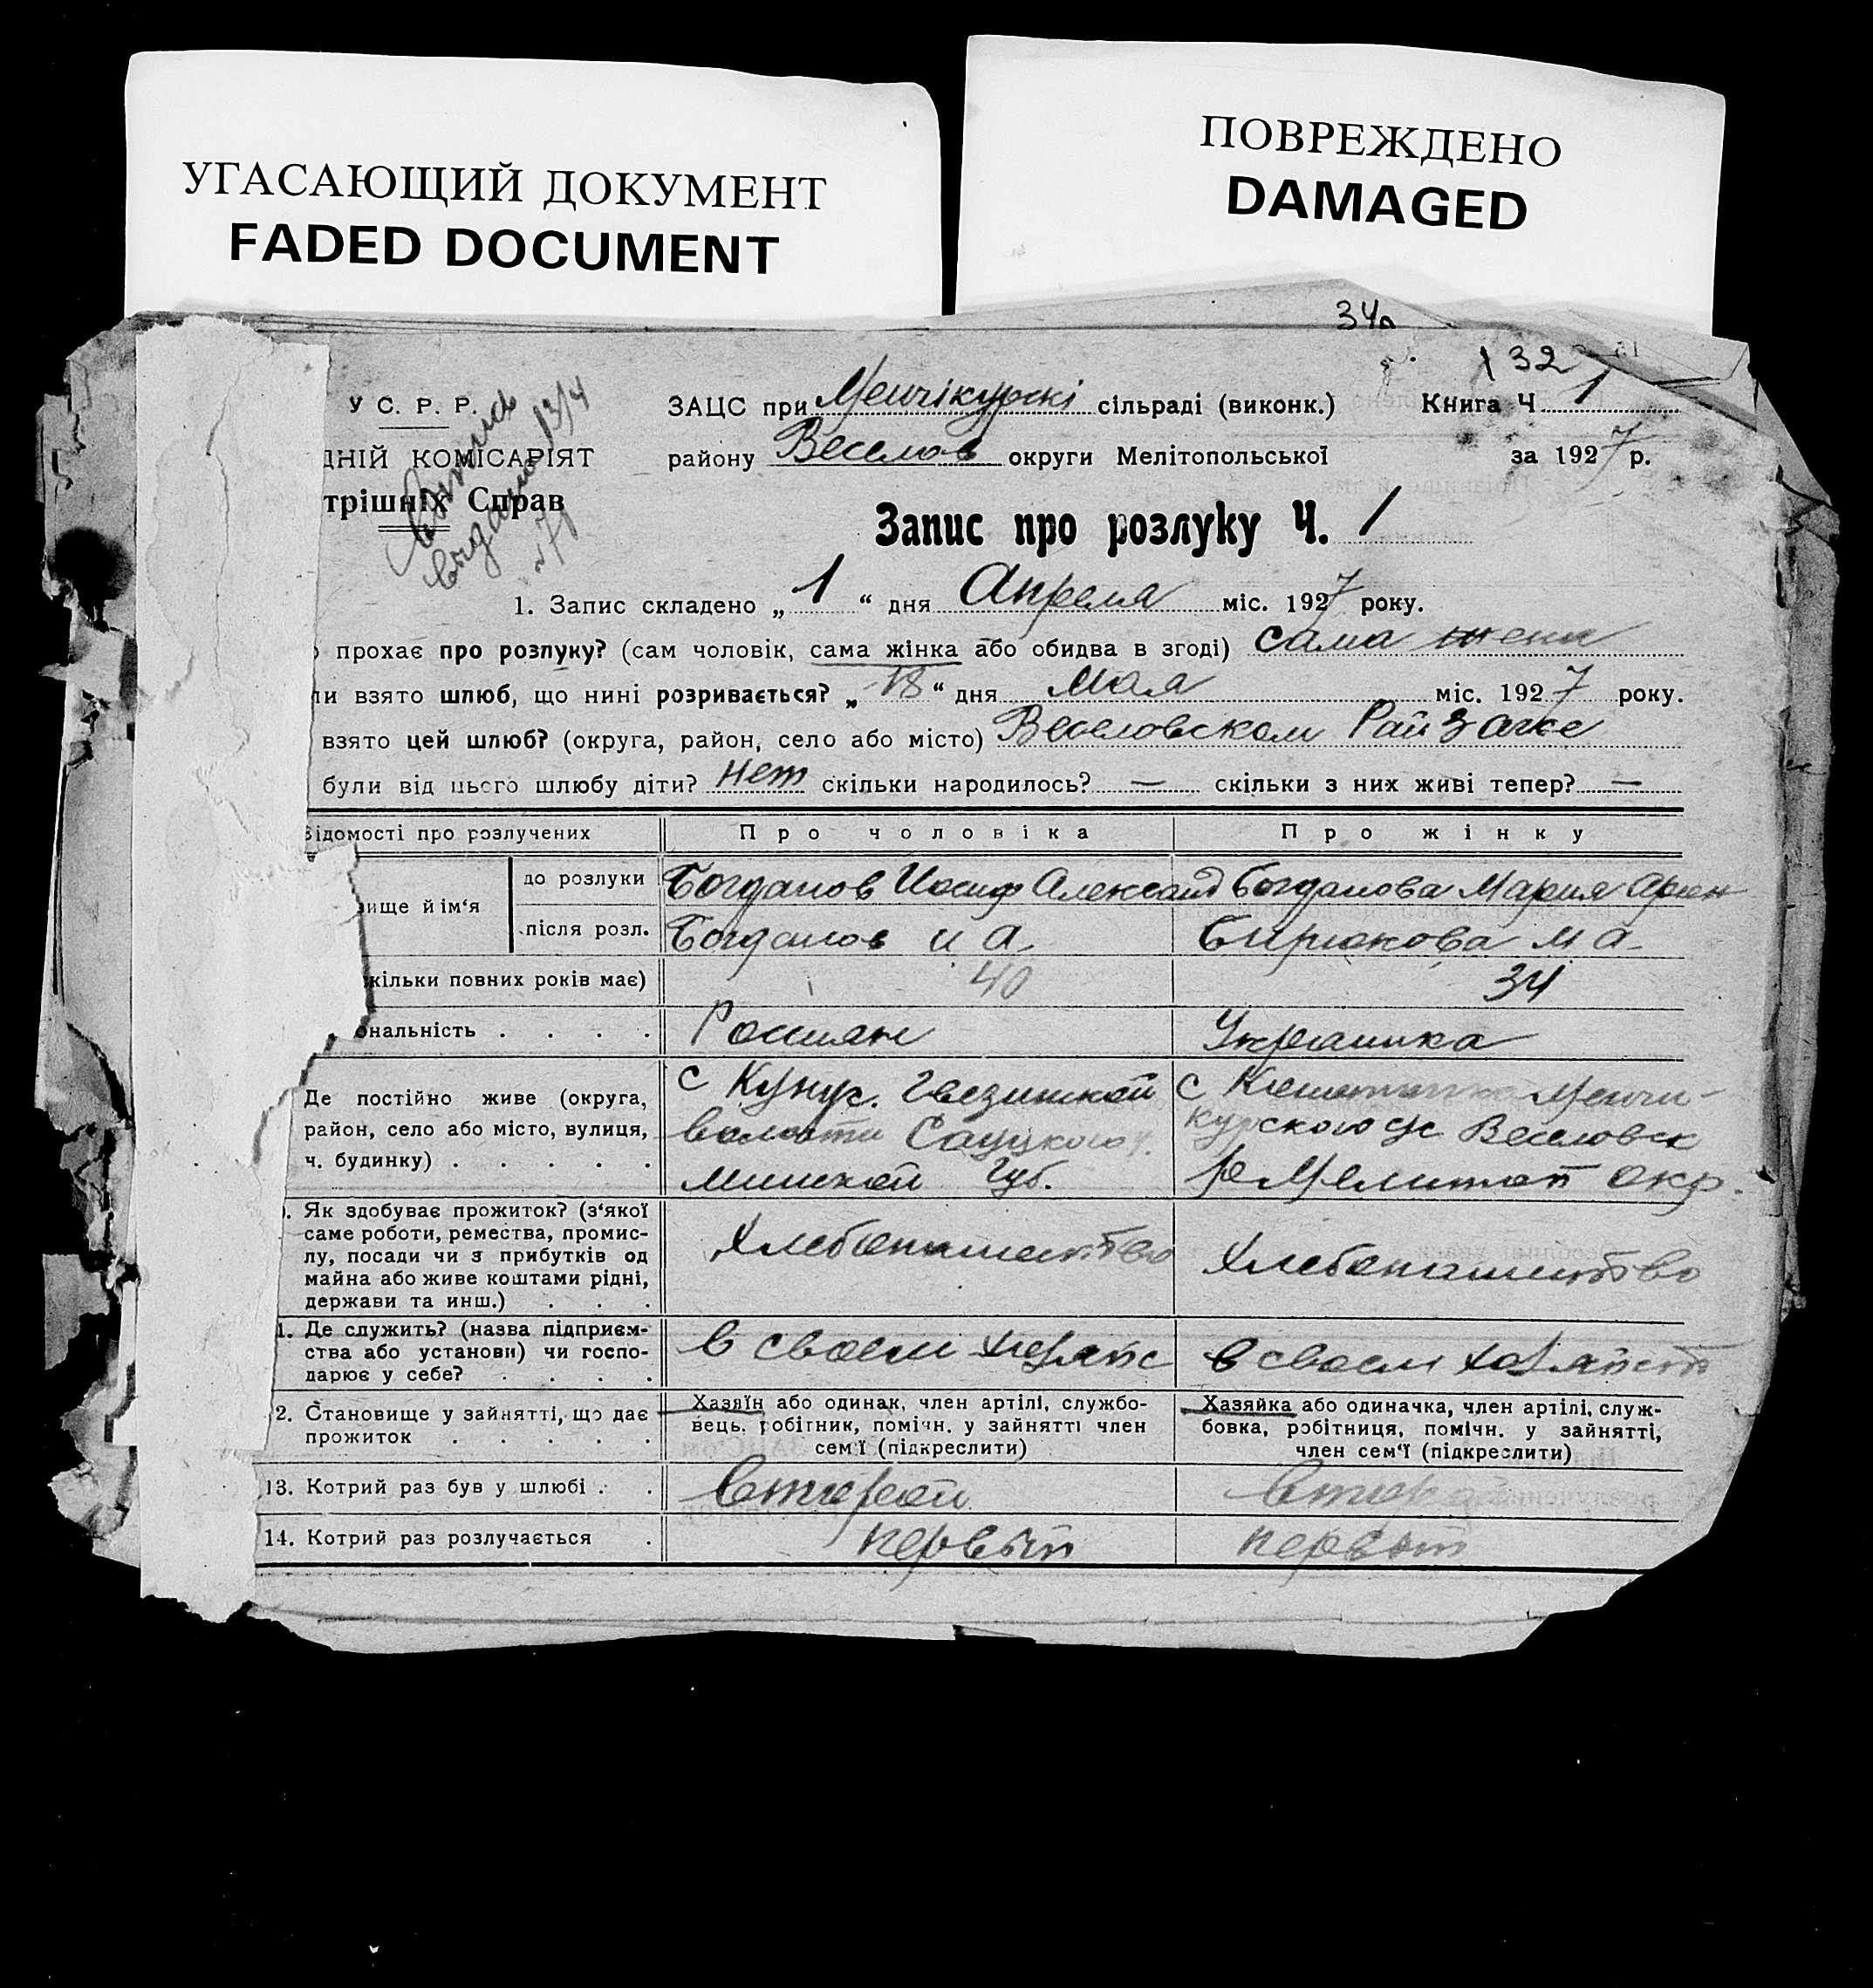 УГАСАЮЩИЙ ДОКУМЕНТ
FADED DOCUMENT
ПОВРЕЖДЕНО
DAMAGED
34а
132
У С. Р. Р.
ДНІЙ КОМІСАРІЯТ
трішніх Справ
13/4
ЗАЦС при Менчікурскі сільраді (виконк.) Книга Ч. 1
району Веселов округи Мелітопольської за 1927 р.
Запис про розлуку Ч. 1
1. Запис складено „ 1 “ дня Апреля міс. 1927 року.
прохає про розлуку? (сам чоловік, сама жінка або обидва в згоді) сама жена
ли взято шлюб, що нині розривається? „ 18 “ дня Мая міс. 1927 року.
взято цей шлюб? (округа, район, село або місто) Веселовском Райзагсе
були від цього шлюбу діти? нет скільки народилось? — скільки з них живі тепер? —
Відомості про розлучених Про чоловіка Про жінку
вище й ім‘я
до розлуки Богданов Иосиф Александ Богданова Мария
після розл. Богданов И А. Бирюкова М А.
кільки повних років має) 40 34
ональність . . . . Россиян Украинка
Де постійно живе (округа, с Кунус. волости
район, село або місто, вулиця,
ч. будинку) . . . . . Минской Губ.
с Менчи-
курского с/с Веселовск
р Мелитоп окр.
Як здобуває прожиток? (з‘якої
саме роботи, ремества, промис-
лу, посади чи з прибутків од
майна або живе коштами рідні,
держави та инш.) . . .
Хлебопашество Хлебопашество
1. Де служить? (назва підприєм-
ства або установи) чи госпо-
дарює у себе? . . . .
в своем хозяйс в своем хозяйств
2. Становище у зайнятті, що дає
прожиток . . . . .
Хазяїн або одинак, член артілі, службо-
вець, робітник, помічн. у зайнятті член
сем‘ї (підкреслити)
Хазяйка або одиначка, член артілі, служ-
бовка, робітниця, помічн. у зайнятті,
член сем‘ї (підкреслити)
13. Котрий раз був у шлюбі . . второй второй
14. Котрий раз розлучається . первый первый